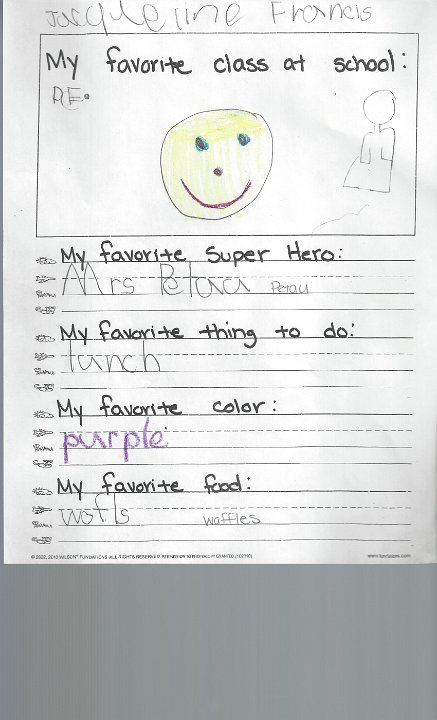 Jacqueline Francis
My favorite class at school:
P.E.
My favorite Super Hero:
Mrs Petau Petau
My favorite thing to do:
lunch
My favorite color:
purple
My favorite food:
wofls waffles
© 2002, 2010 WILSON FUNDATIONS. ALL RIGHTS RESERVED. PERMISSION TO PHOTOCOPY GRANTED.
www.fundations.com